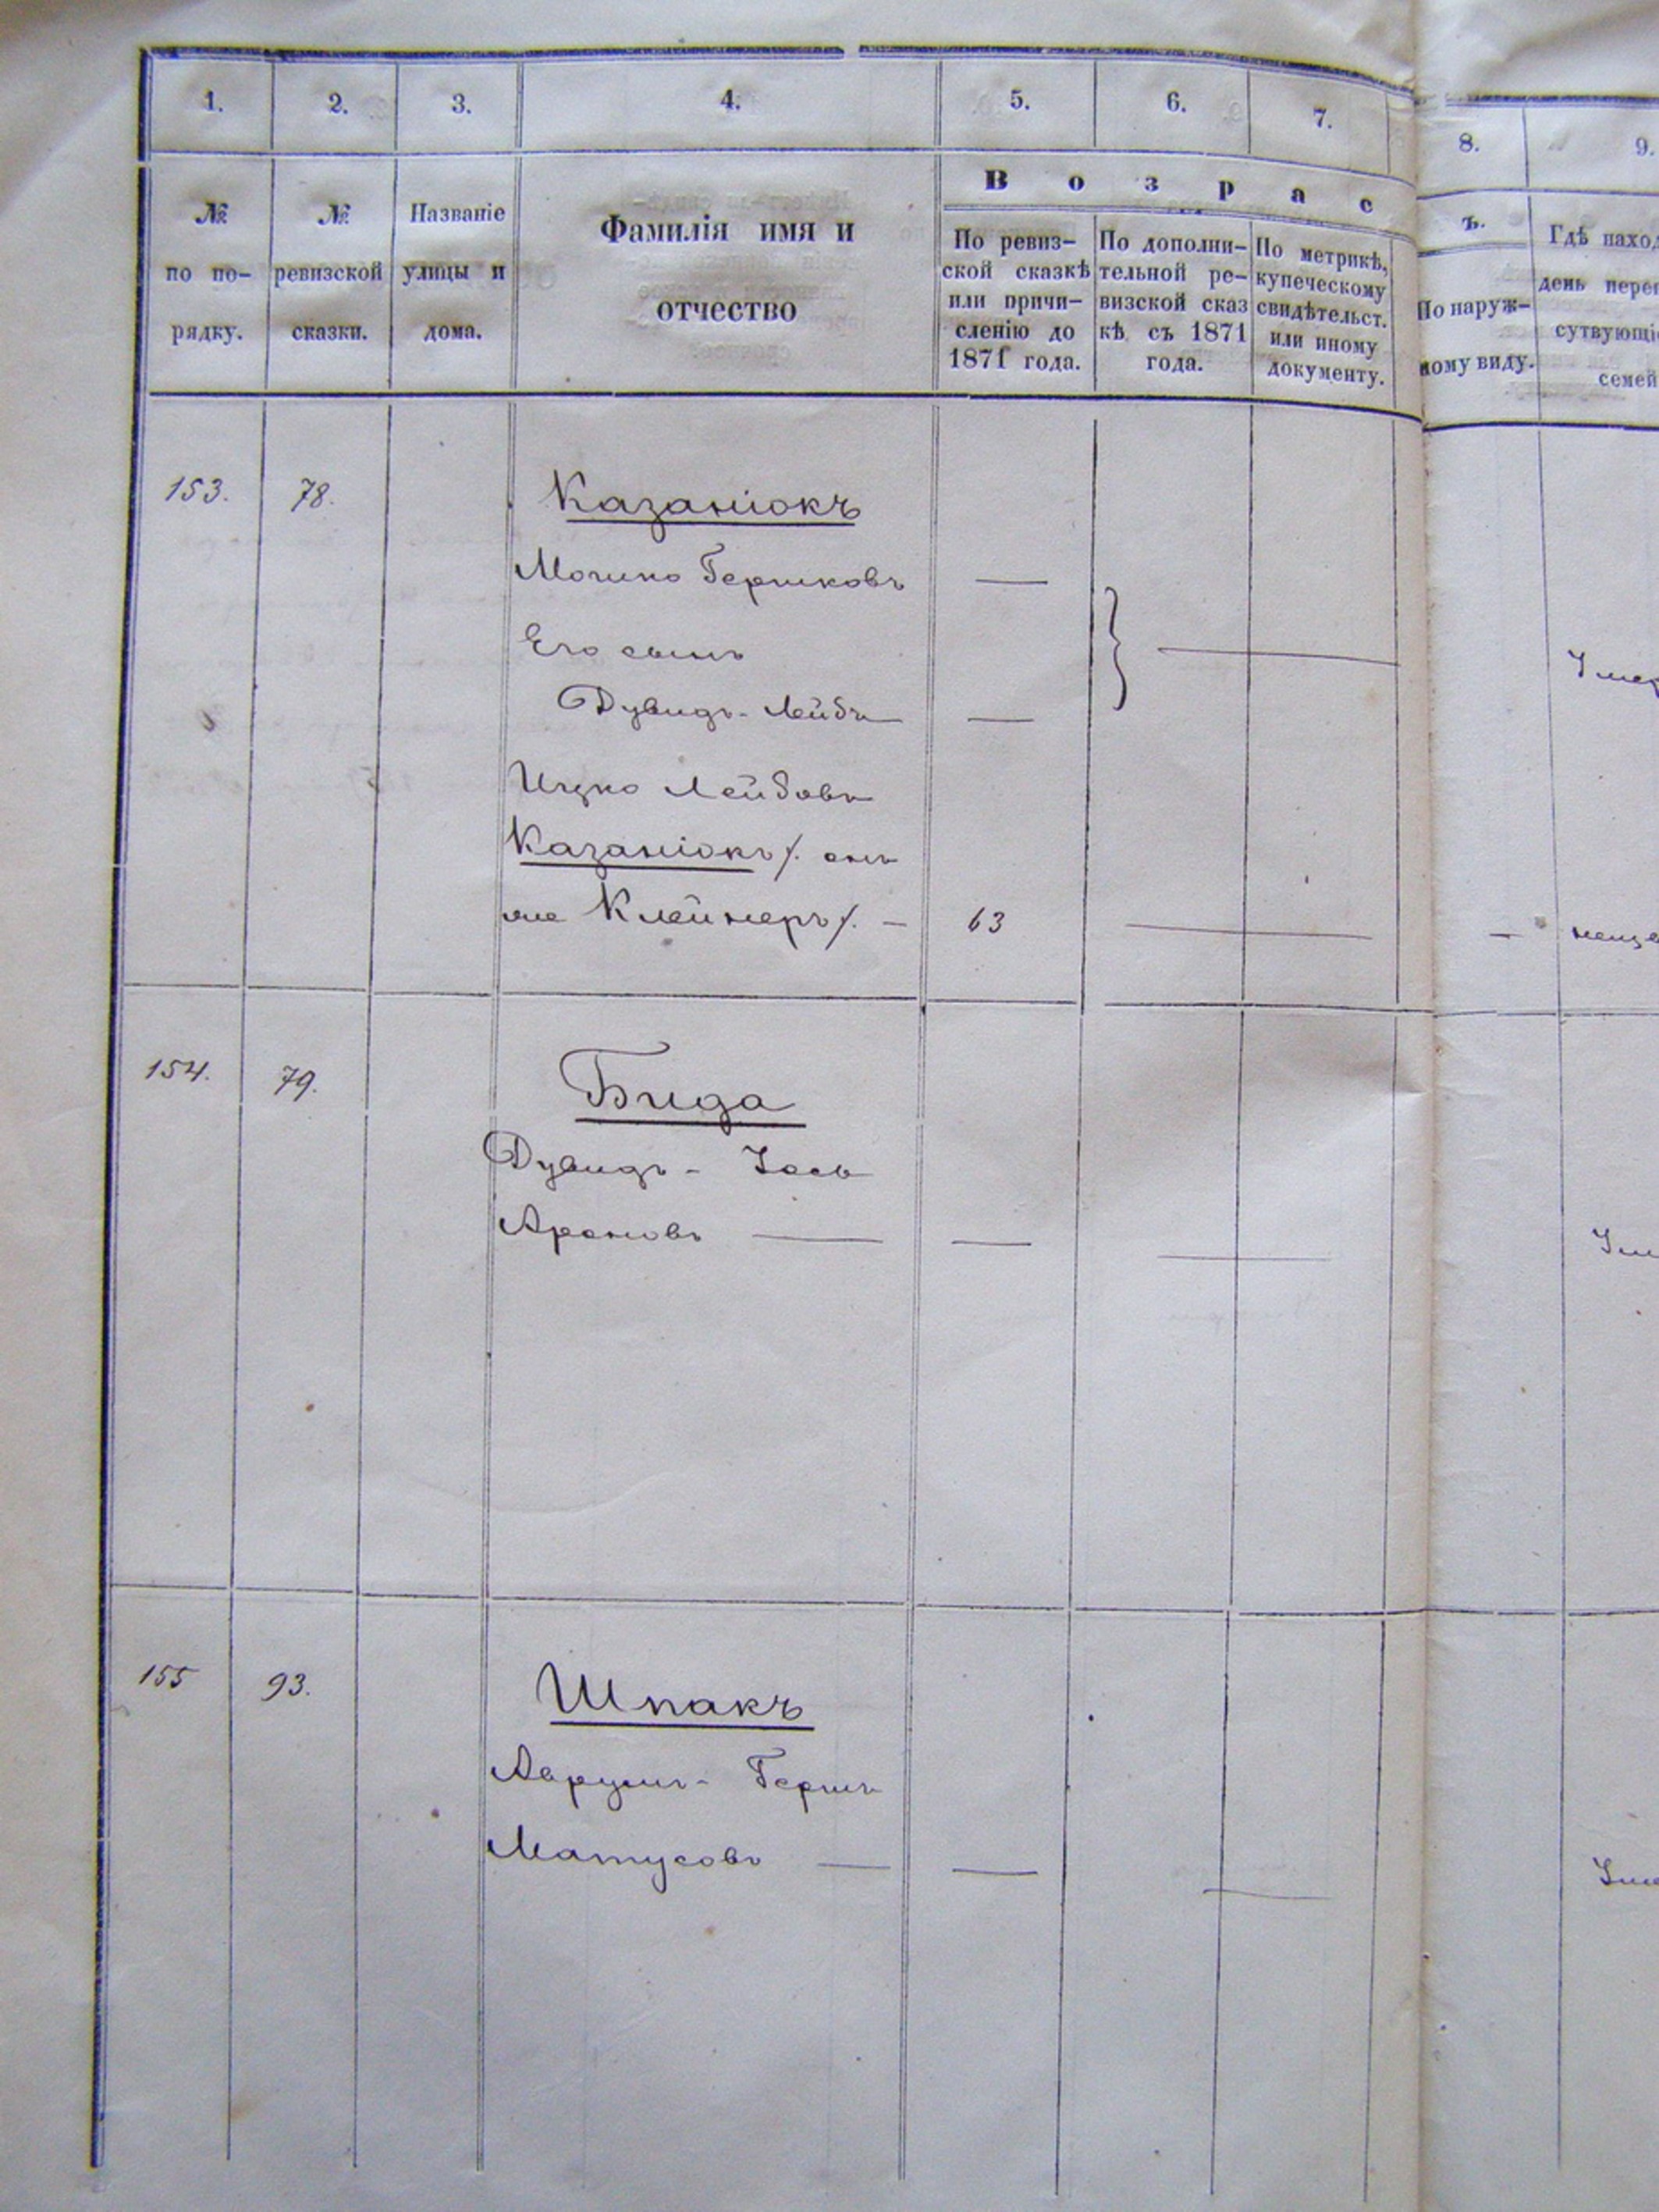 1. 2. 3. 4. 5. 6. 7. 8. 9.
№ по по- рядку.
№ ревизской сказки.
Названіе улицы и дома.
Фамилія имя и
отчество
В о з р а с
ъ.
По ревиз-
ской сказкѣ
или причи-
сленію до
1871 года.
По дополни-
тельной ре-
визской сказ
кѣ съ 1871
года.
По метрикѣ,
купеческому
свидѣтельст.
или иному
документу.
По наруж-
ному виду.
Гдѣ наход
день переп
сутвующі
семей
153. 78. Казаніокъ
Мошко Гершковъ —
Его сынъ
Дувидъ-Лейбъ —
Ицко Лейбовъ
Казаніокъ/. онъ
же Клейнеръ/. — 63 —
154. 79. Бида
Дувидъ - Іось
Ароновъ — —
155 93. Шпакъ
Аврумъ - Гершъ
Матусовъ — —